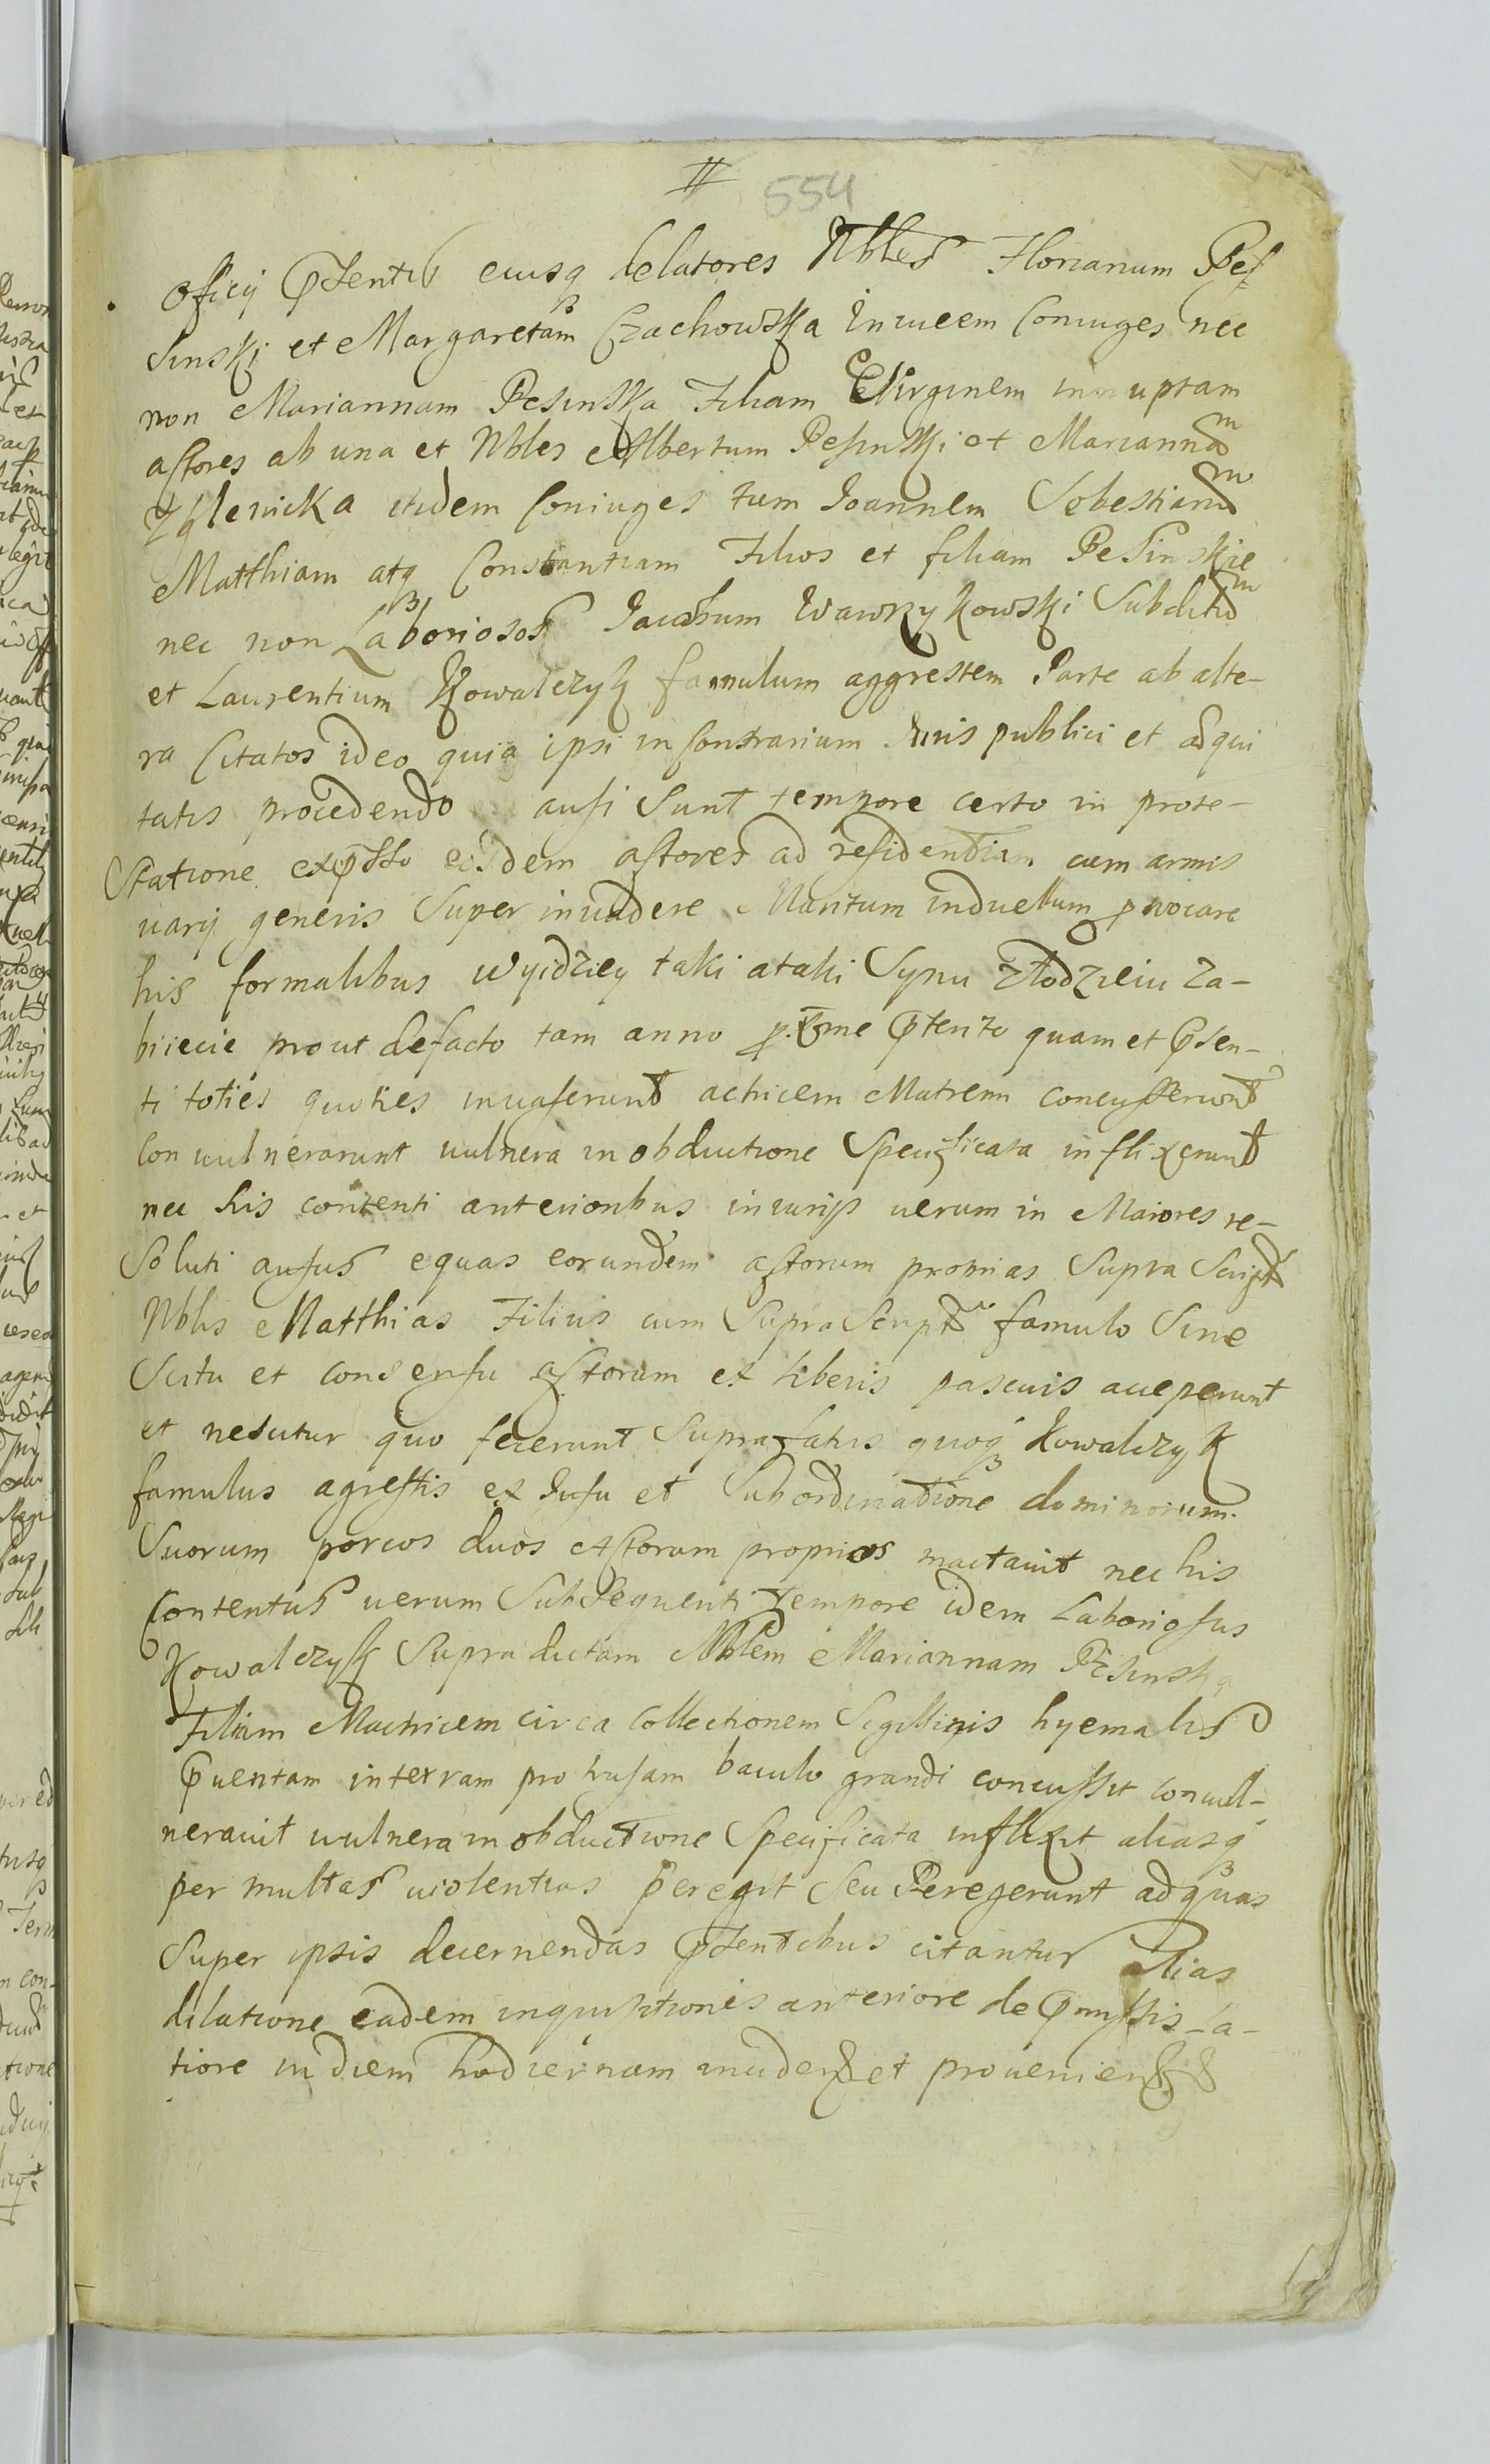 554
Officij Pntis eiusq delatores Nbles Florianum Pes
sinski et Margaretam Czachowska Inuicem Coniuges nec
non Mariannam Pesinska Filiam Virginem innuptam
actores ab una et Nbles Albertum Pesinski et Mariannam
itidem Coniuges tum Joannem Sebestianum
Matthiam atq Constantiam Filios et filiam Pesinskie
nec non Laboriosos Jacobum Wawrzykowski Subditum
et Laurentium Kowalczyk famulum aggrestem Parte ab alte-
ra Citatos ideo quia ipsi in Contrarium Iuris publici et aequi
tatis procedendo ausi Sunt tempore certo in prote-
statione expsso eosdem actores ad residentiam cum armis
varij generis Super inuadere Maritum in duellum pvocare
his formalibus wyidziey taki ataki Synu złodzieiu za-
biiecie prout defacto tam anno pxme Pterito quam et Psen-
ti toties quoties inuaserunt actricem Matrem concusserunt
Con uulnerarunt uulnera in obductione Specificata inflixerunt
nec his contenti anterioribus iniurijs uerum in Maiores re-
Soluti ausus equas eorundem actorum proprias Supra Script
Nblis Matthias Filius cum Supra Scripto famulo Sine
Scitu et consensu actorum ex liberis pascuis acceperunt
et nescitur quo fecerunt Suprafatus quoq Kowalczyk
famulus agrestis ex Iusu et Subordinatione dominorum
Suorum porcos duos Actorum proprios mactauit nec his
Contentus uerum Subsequenti Tempore idem Laboriosus
Kowalczyk Supra dictam Nblem Mariannam Pesinska
Filiam Mactricem circa Collectionem Sigillinis hyemalis
Puentam in terram pro trusam baculo grandi concussit conuul-
nerauit uulnera in obductione Specificata inflixit aliasq
per multas uiolentias peregit Seu Peregerunt ad quas
Super ipsis decernendas Psentibus citantur Alias
dilatione eadem inquisitionis anteriore de Pmissis La-
tiore in diem hodiernam inciden et prouenien